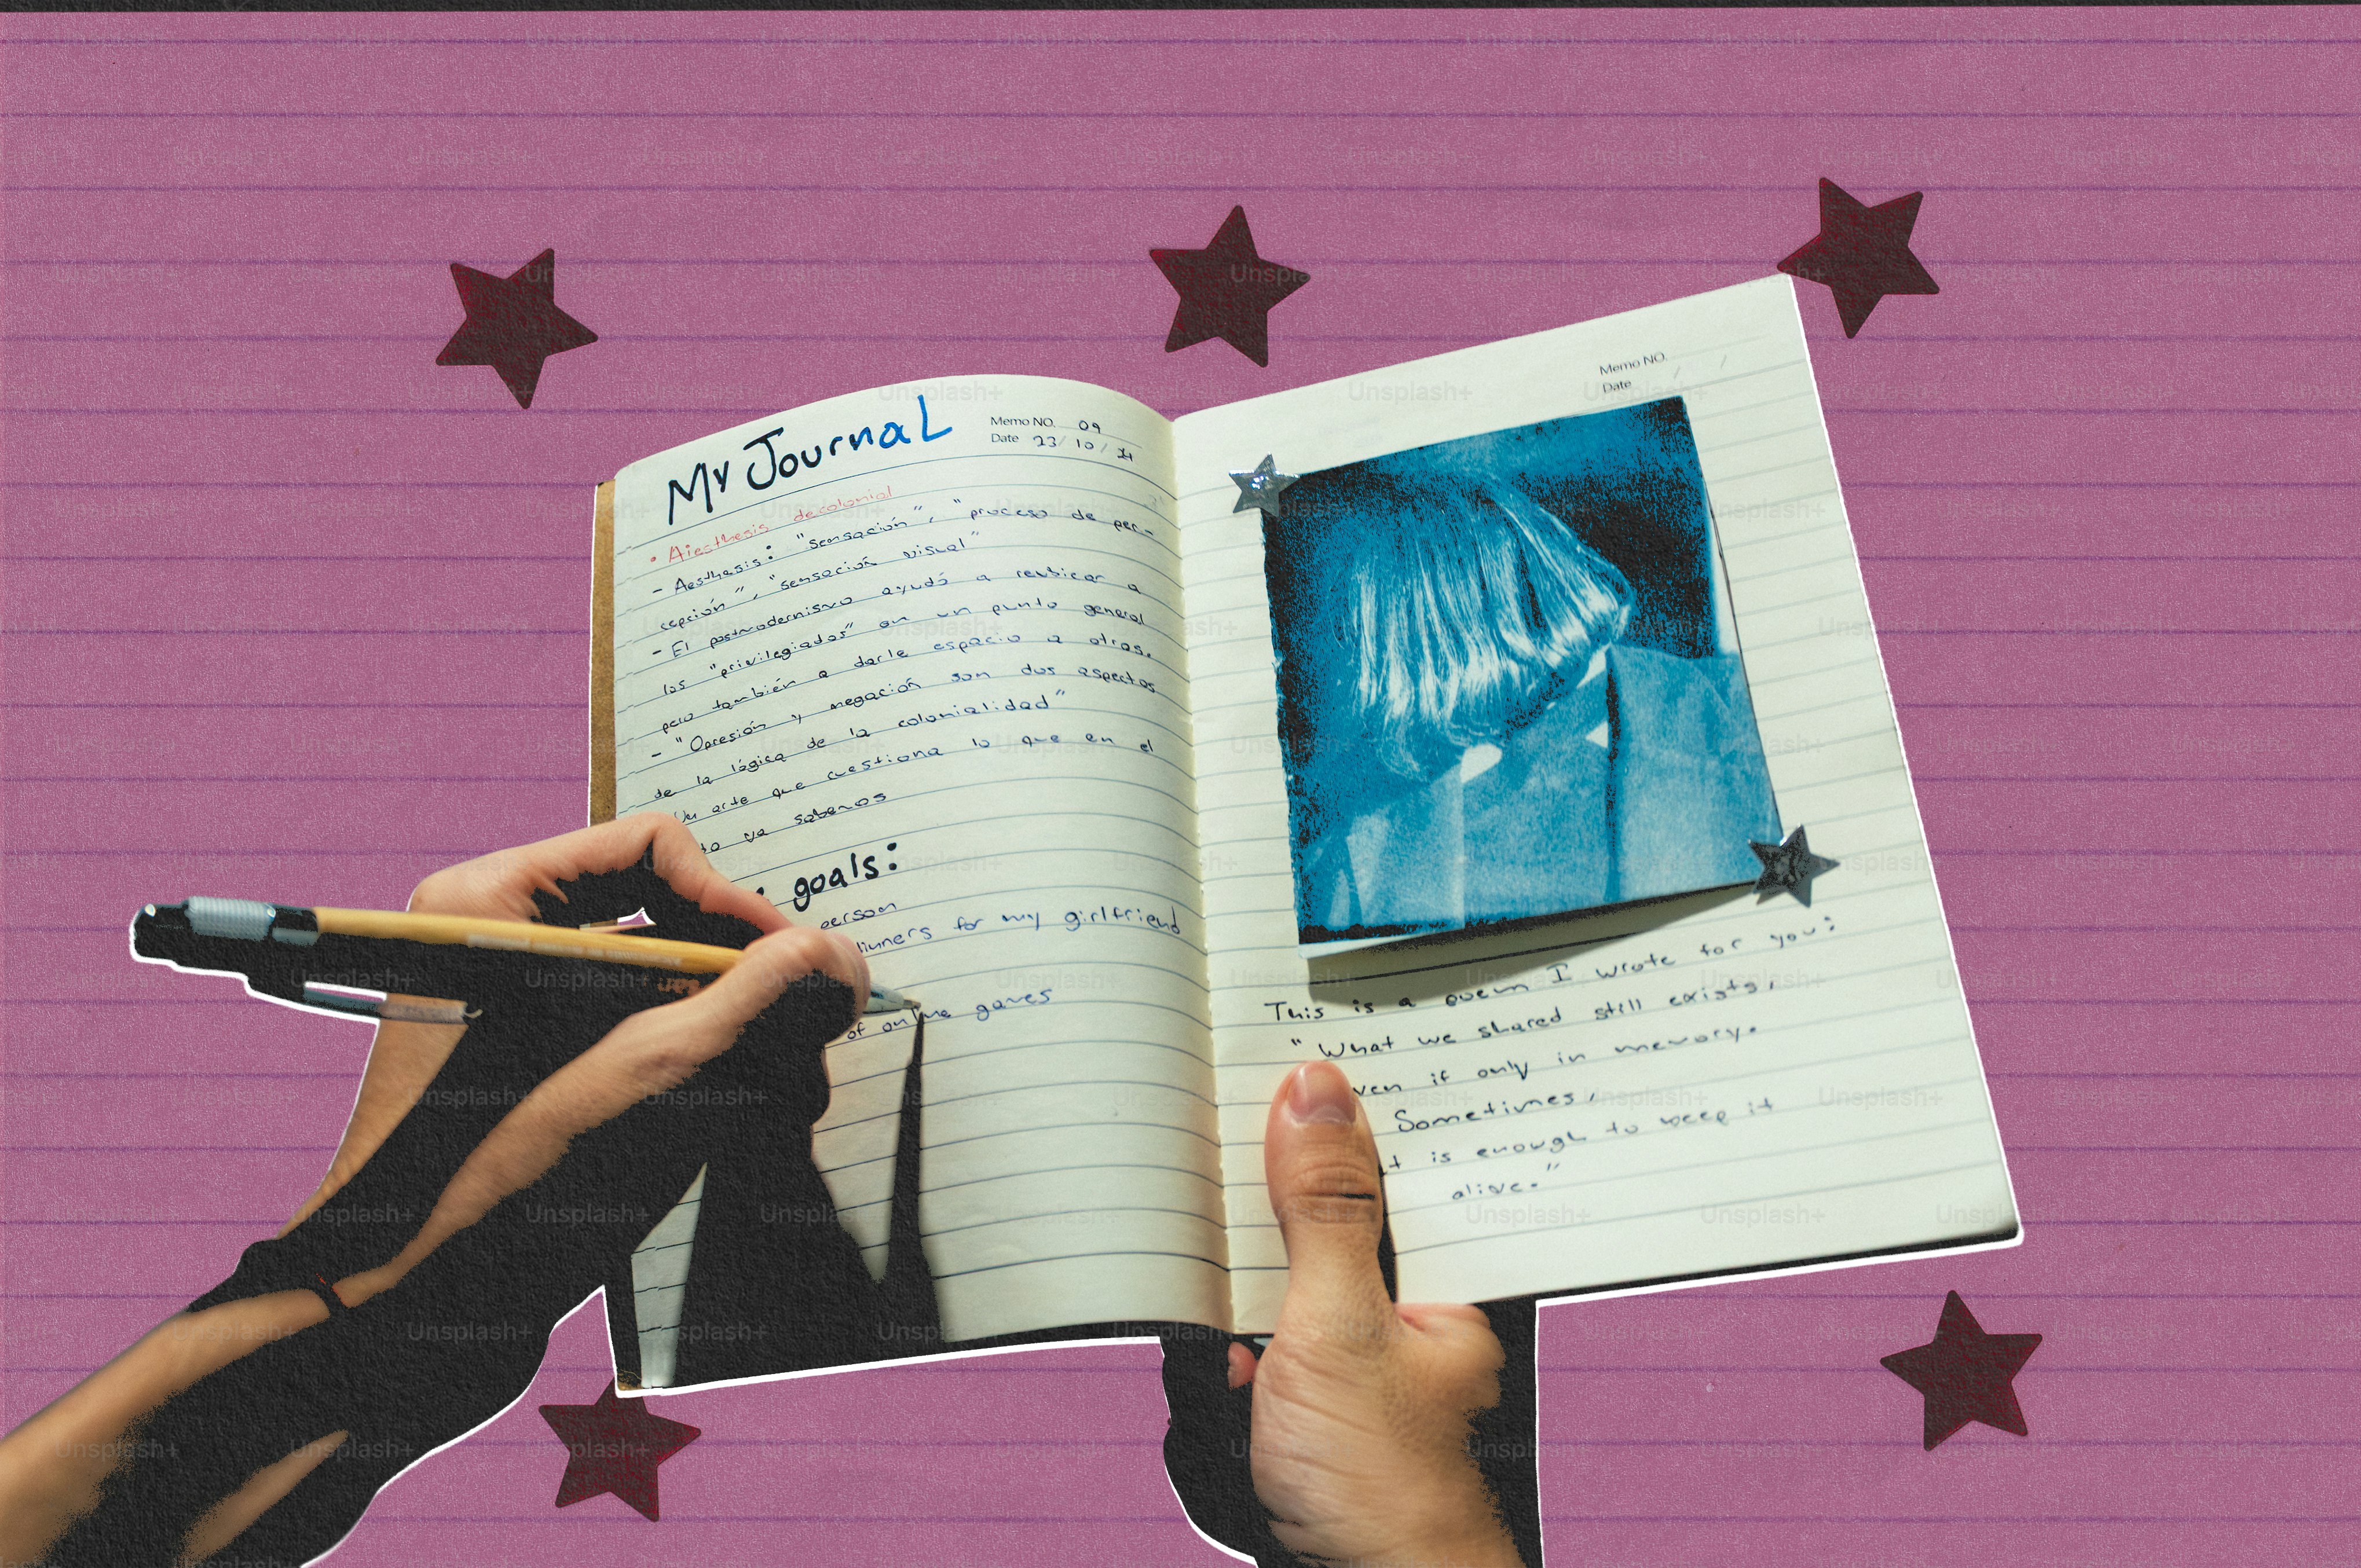 My Journal
Memo NO. 09
Date 23/10/
• Aiesthesis decolonial
- Aesthesis: "sensación", "proceso de per-
cepción", "sensación visual"
- El postmodernismo ayudó a reubicar a
los "privilegiados" en un punto general
pero también a darle espacio a otros.
- "Opresión y negación son dos aspectos
de la lógica de la colonialidad"
Un arte que cuestiona lo que en el
ya sabemos
goals:
person
dinners for my girlfriend
of online games
Memo NO.
Date / /
This is a poem I wrote for you:
"What we shared still exists,
ven if only in memory.
Sometimes,
t is enough to keep it
alive."
Unsplash+